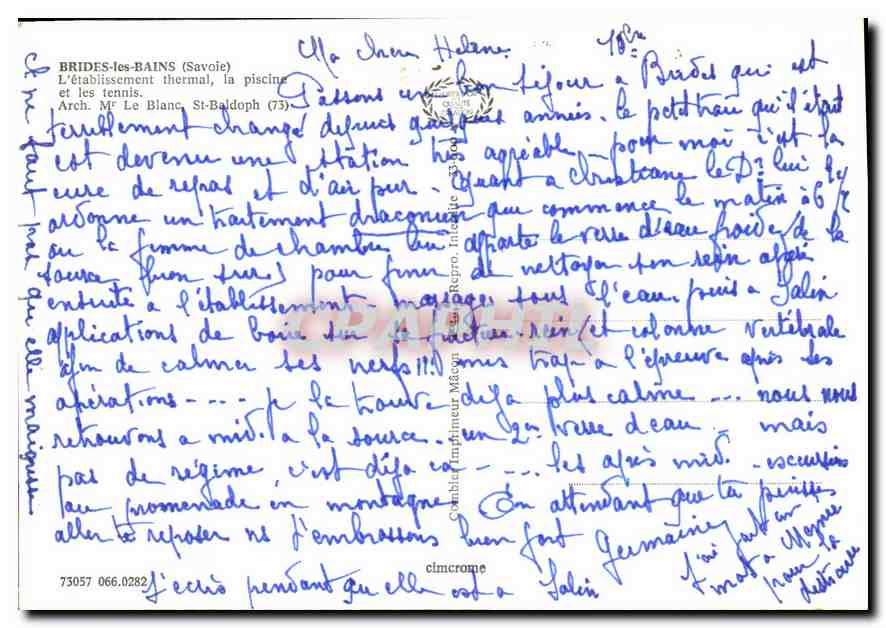 BRIDES-les-BAINS (Savoie)
L'établissement thermal, la piscine
et les tennis.
Arch. Mr Le Blanc, St-Baldoph (73)
Ma chere Helene
Passons un bon séjour a Brides qui est
terriblement changé depuis quelques années. le petit trou qu'il était
est devenu une station très agréable, pour moi c'est la
cure de repos et d'air pur. Quant a Christiane le Dr lui
ordonne un traitement draconien qui commence le matin à 6
ou la femme de chambre lui apporte le verre d'eau froide de la
source (bien sure) pour finir de nettoyer son rein opéré
ensuite a l'établissement - massages sous l'eau. puis a Salin
applications de boue sur la fracture. rein et colonne vertébrale
afin de calmer ses nerfs!!! mis trop a l'épreuve après ses
opérations - - - - je la trouve déja plus calme ... nous nous
retrouvons a midi a la source. un 2em verre d'eau - mais
pas de régime, c'est déja ca - - ... les après midi - excursions
ou promenade en montagne. En attendant que tu puisses
aller te reposer ns t'embrassons bien fort Germaine
J'ecris pendant qu'elle est a Salin
il ne faut pas qu'elle maigrisse
J'ai fait un
mot a
pour la
distraire
Combier Imprimeur Mâcon
Repro. Interdite
cimcrome
73057 066.0282
CPARHTI